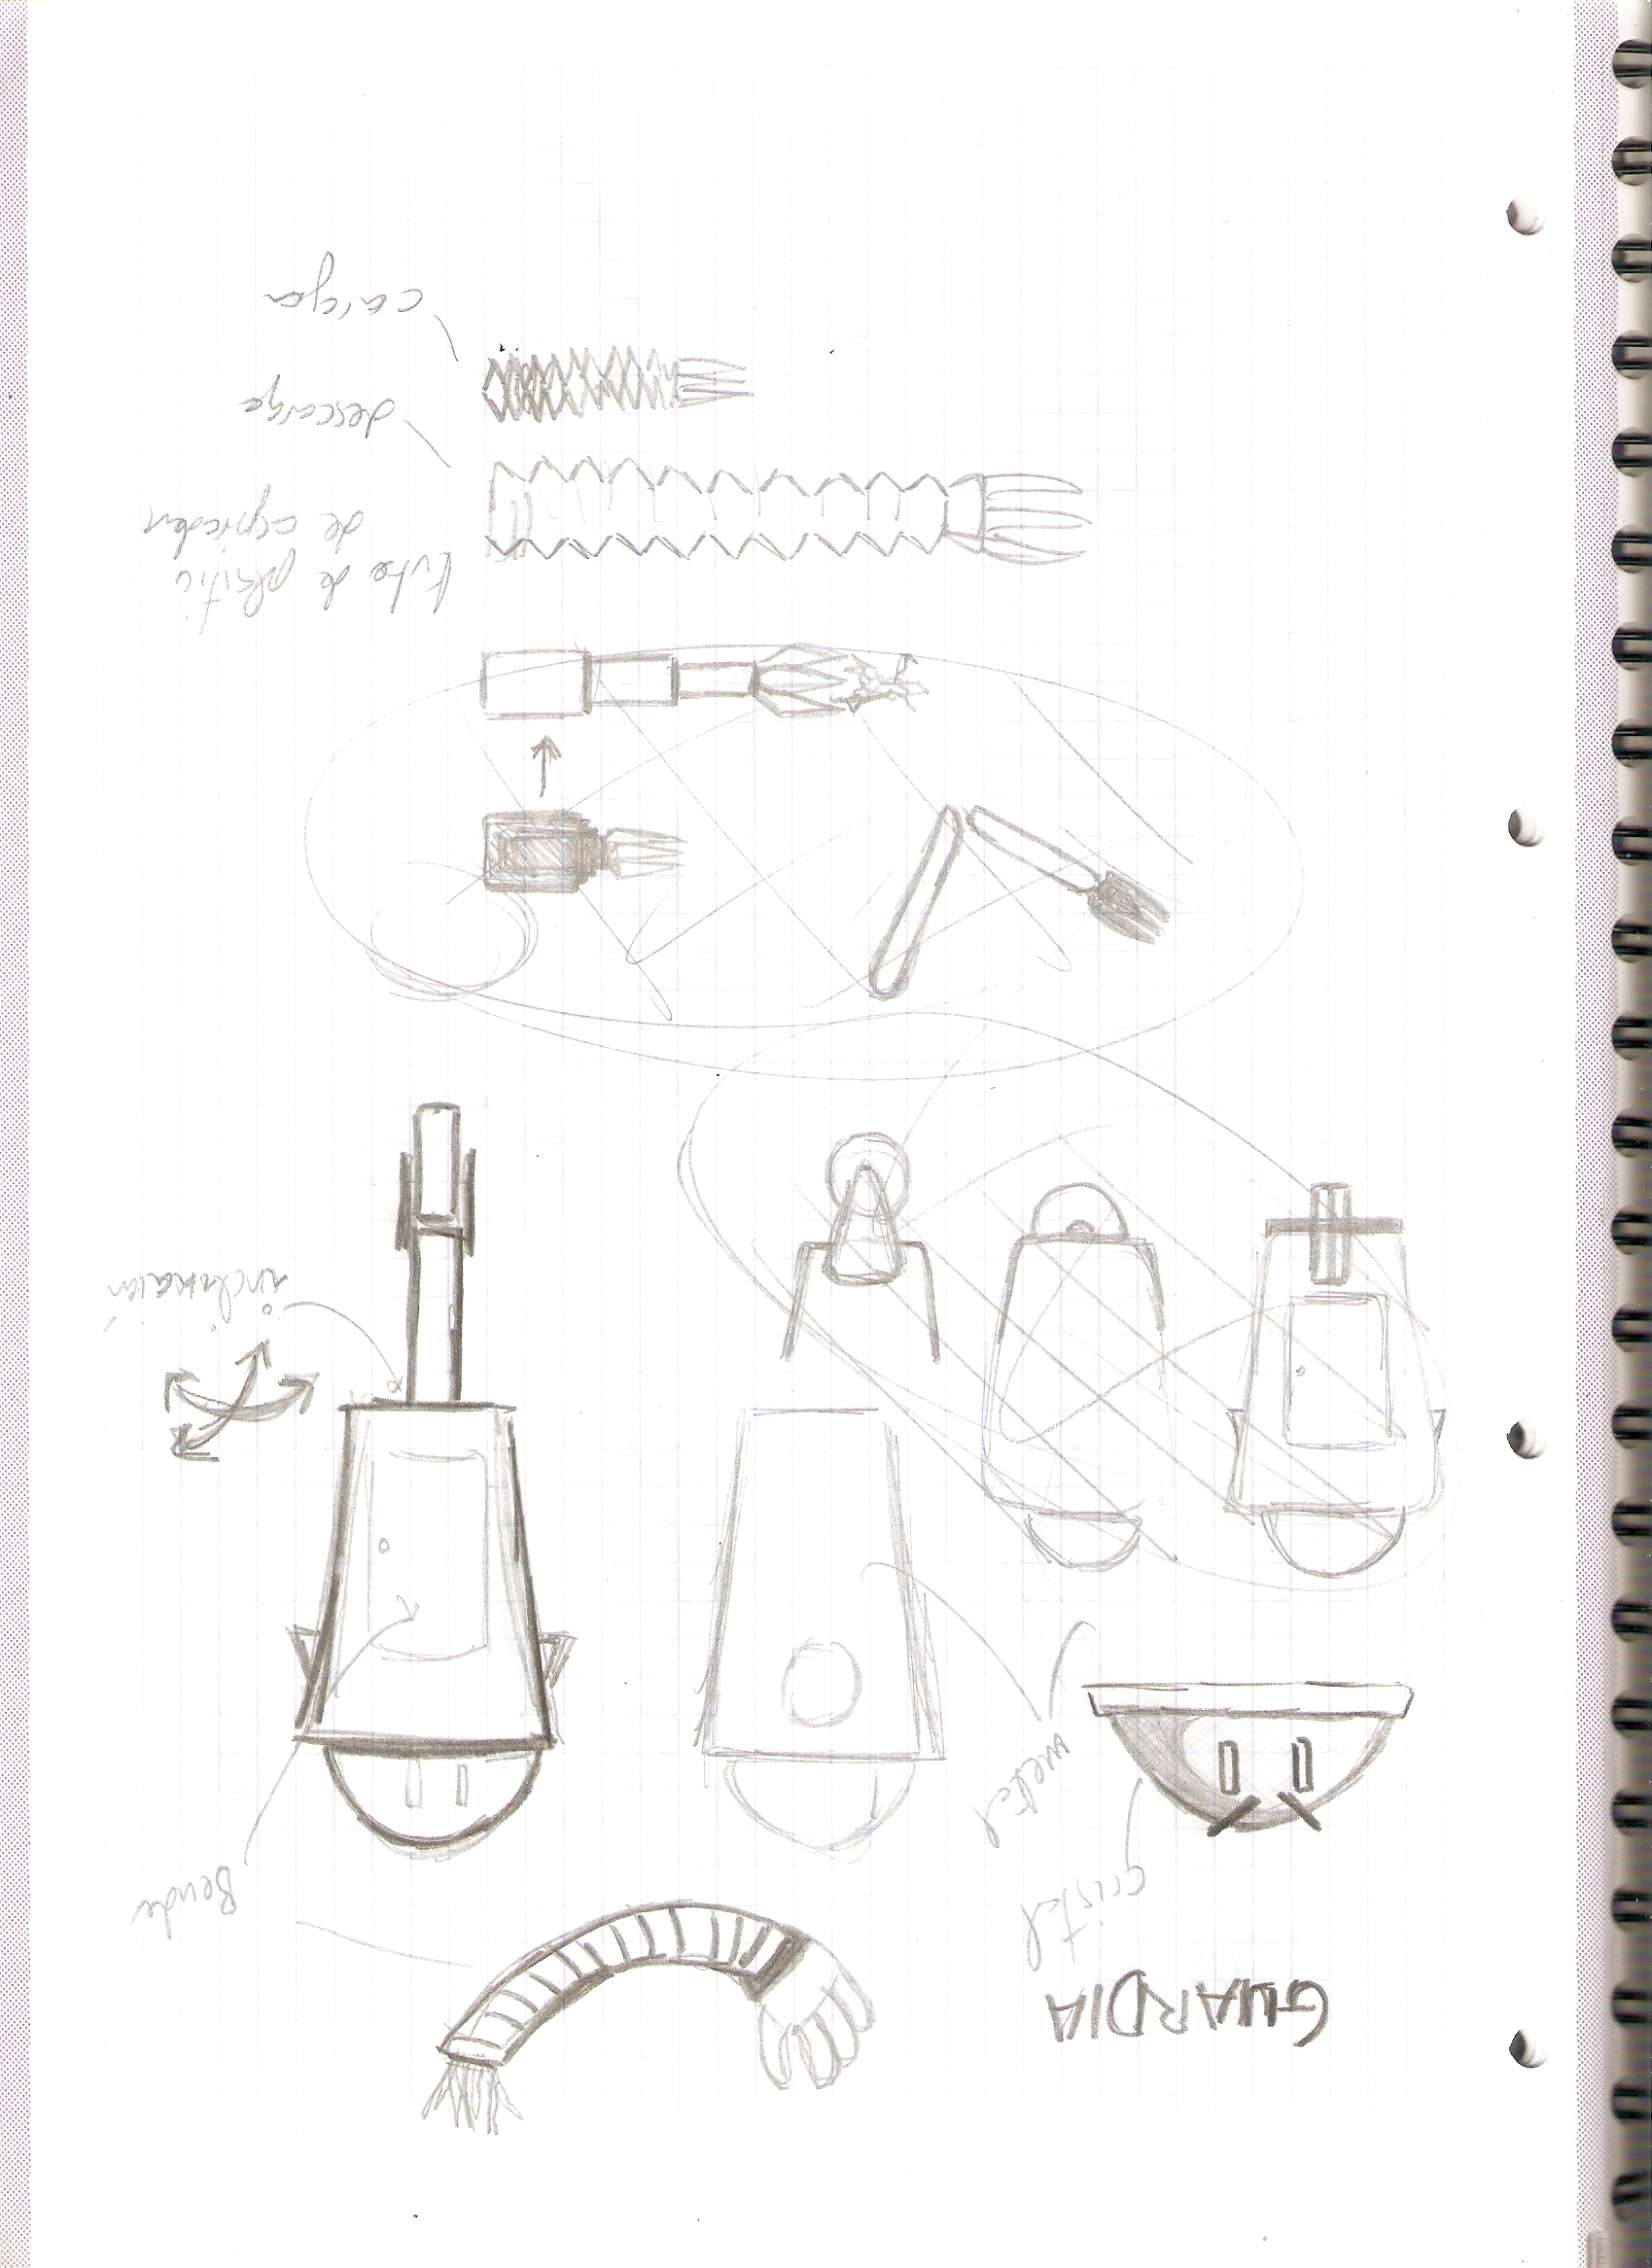 GUARDIA
cristal
metal
Bender
inclinación
tubo de plastico
de aspiradora
descarga
carga